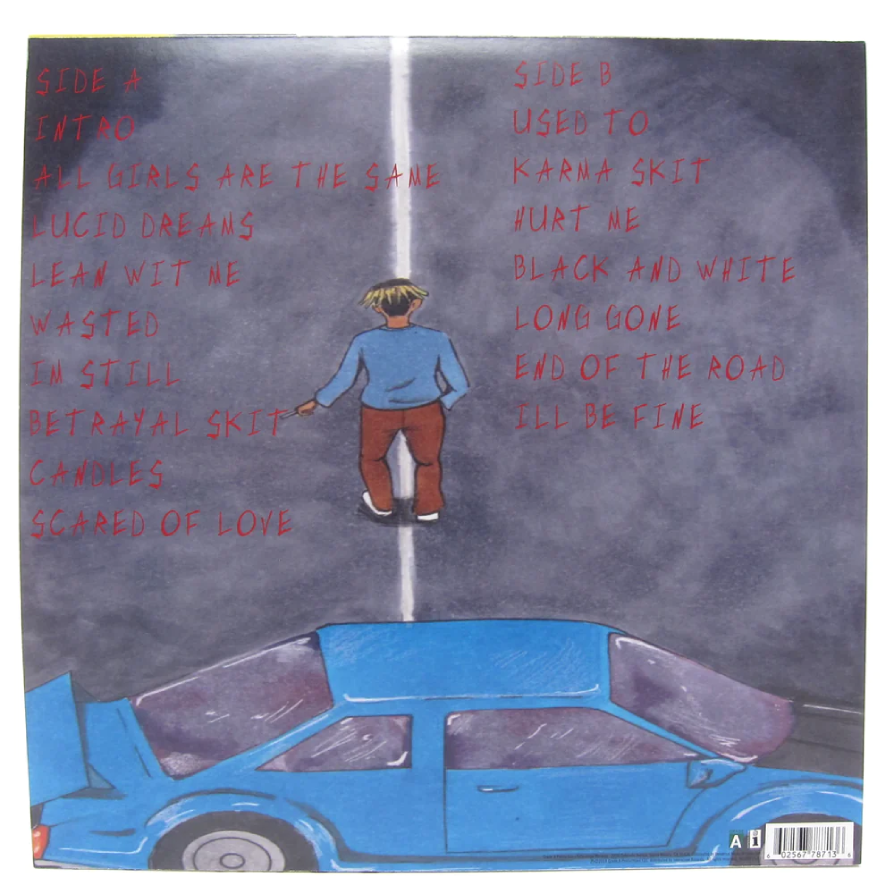 SIDE A
INTRO
ALL GIRLS ARE THE SAME
LUCID DREAMS
LEAN WIT ME
WASTED
IM STILL
BETRAYAL SKIT
CANDLES
SCARED OF LOVE
SIDE B
USED TO
KARMA SKIT
HURT ME
BLACK AND WHITE
LONG GONE
END OF THE ROAD
ILL BE FINE
A
6 02567 78713 9